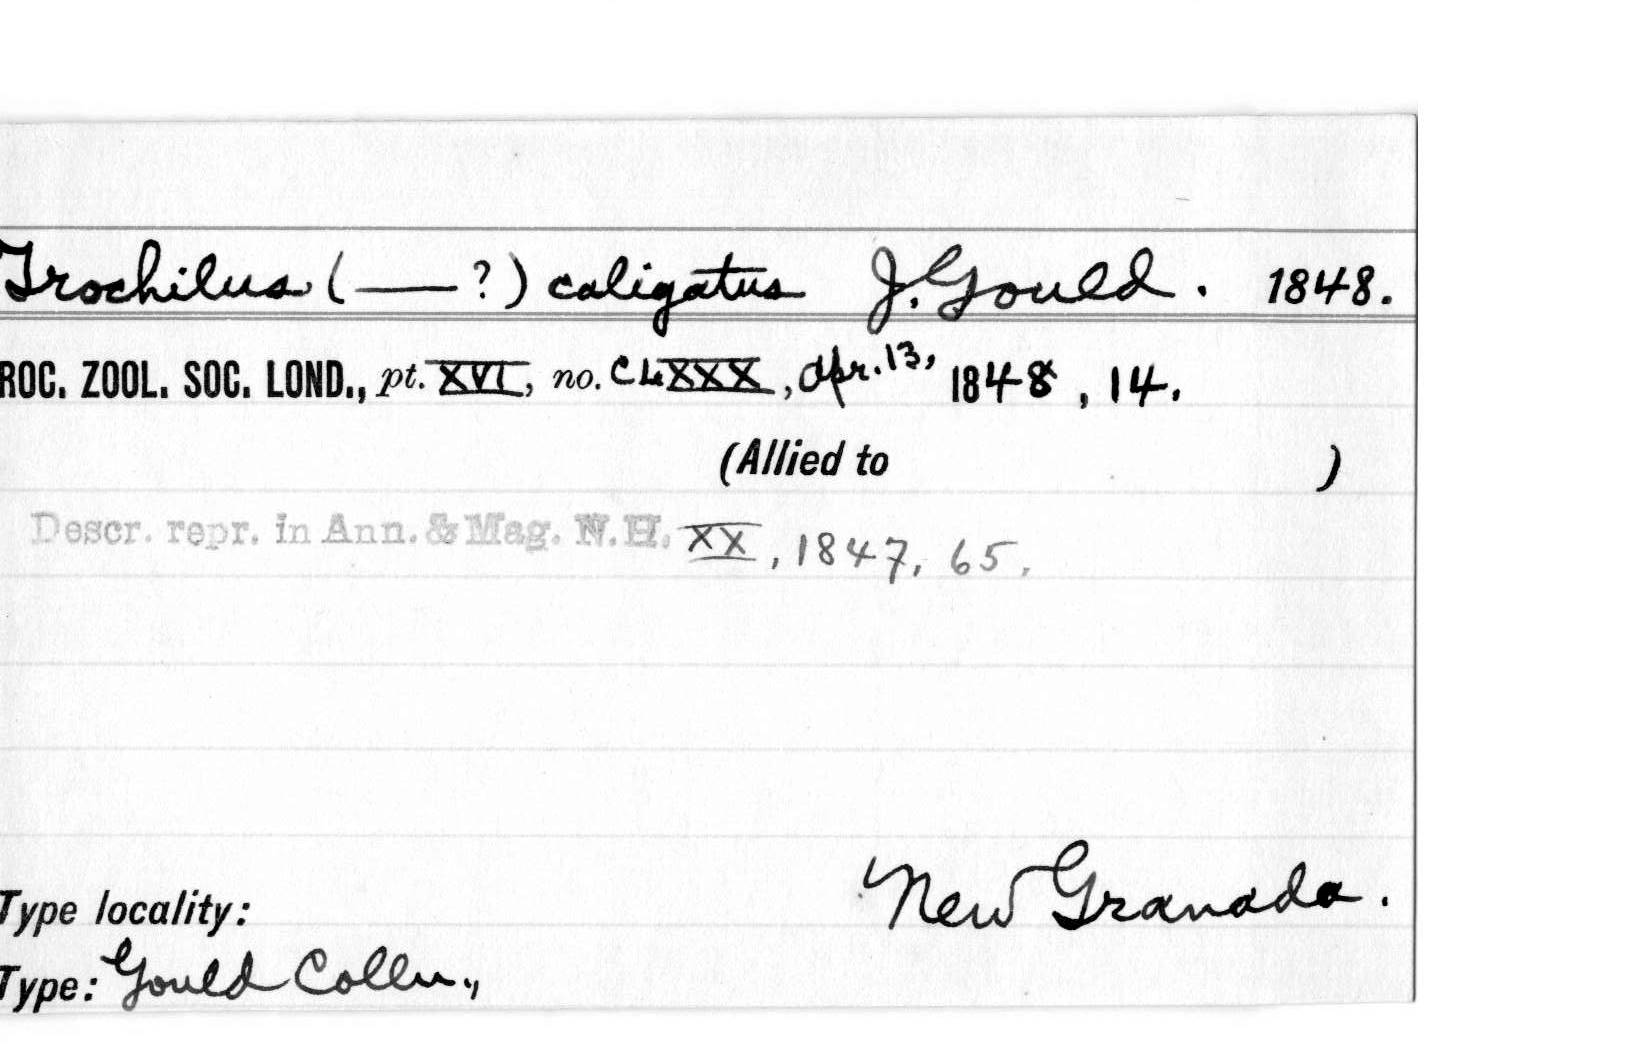 Trochilus (——?) caligatus J. Gould. 1848.
ROC. ZOOL. SOC. LOND., pt. XVI, no. CLXXX, Apr. 13, 1848, 14.
(Allied to )
Descr. repr. in Ann. & Mag. N.H. XX, 1847, 65.
Type locality: New Granada.
Type: Gould Colln.,